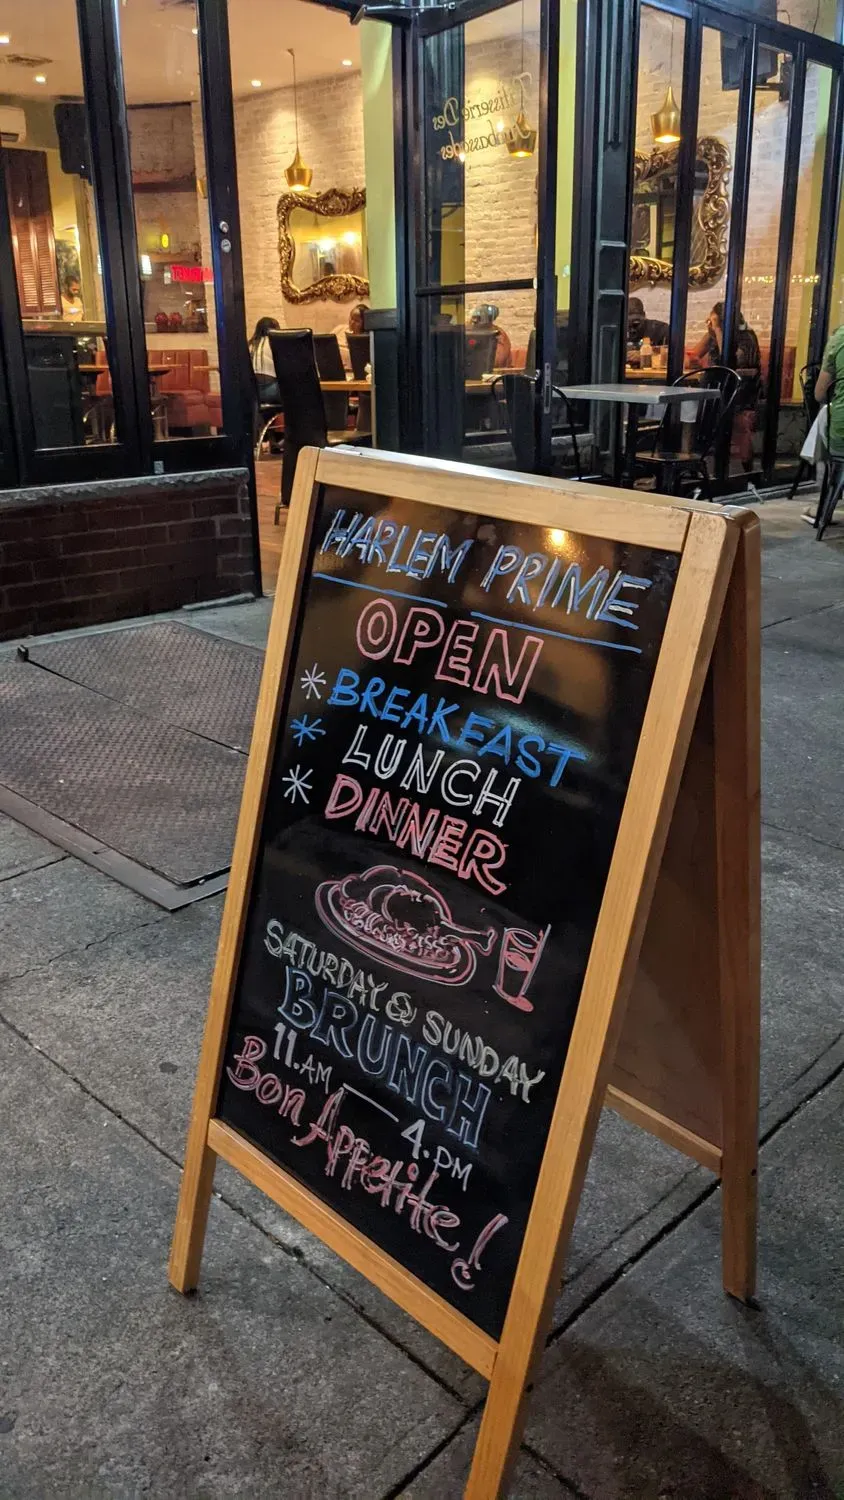 Pâtisserie Des
Ambassades
HARLEM PRIME
OPEN
* BREAKFAST
* LUNCH
* DINNER
SATURDAY & SUNDAY
BRUNCH
11.AM — 4.PM
Bon Appetite!